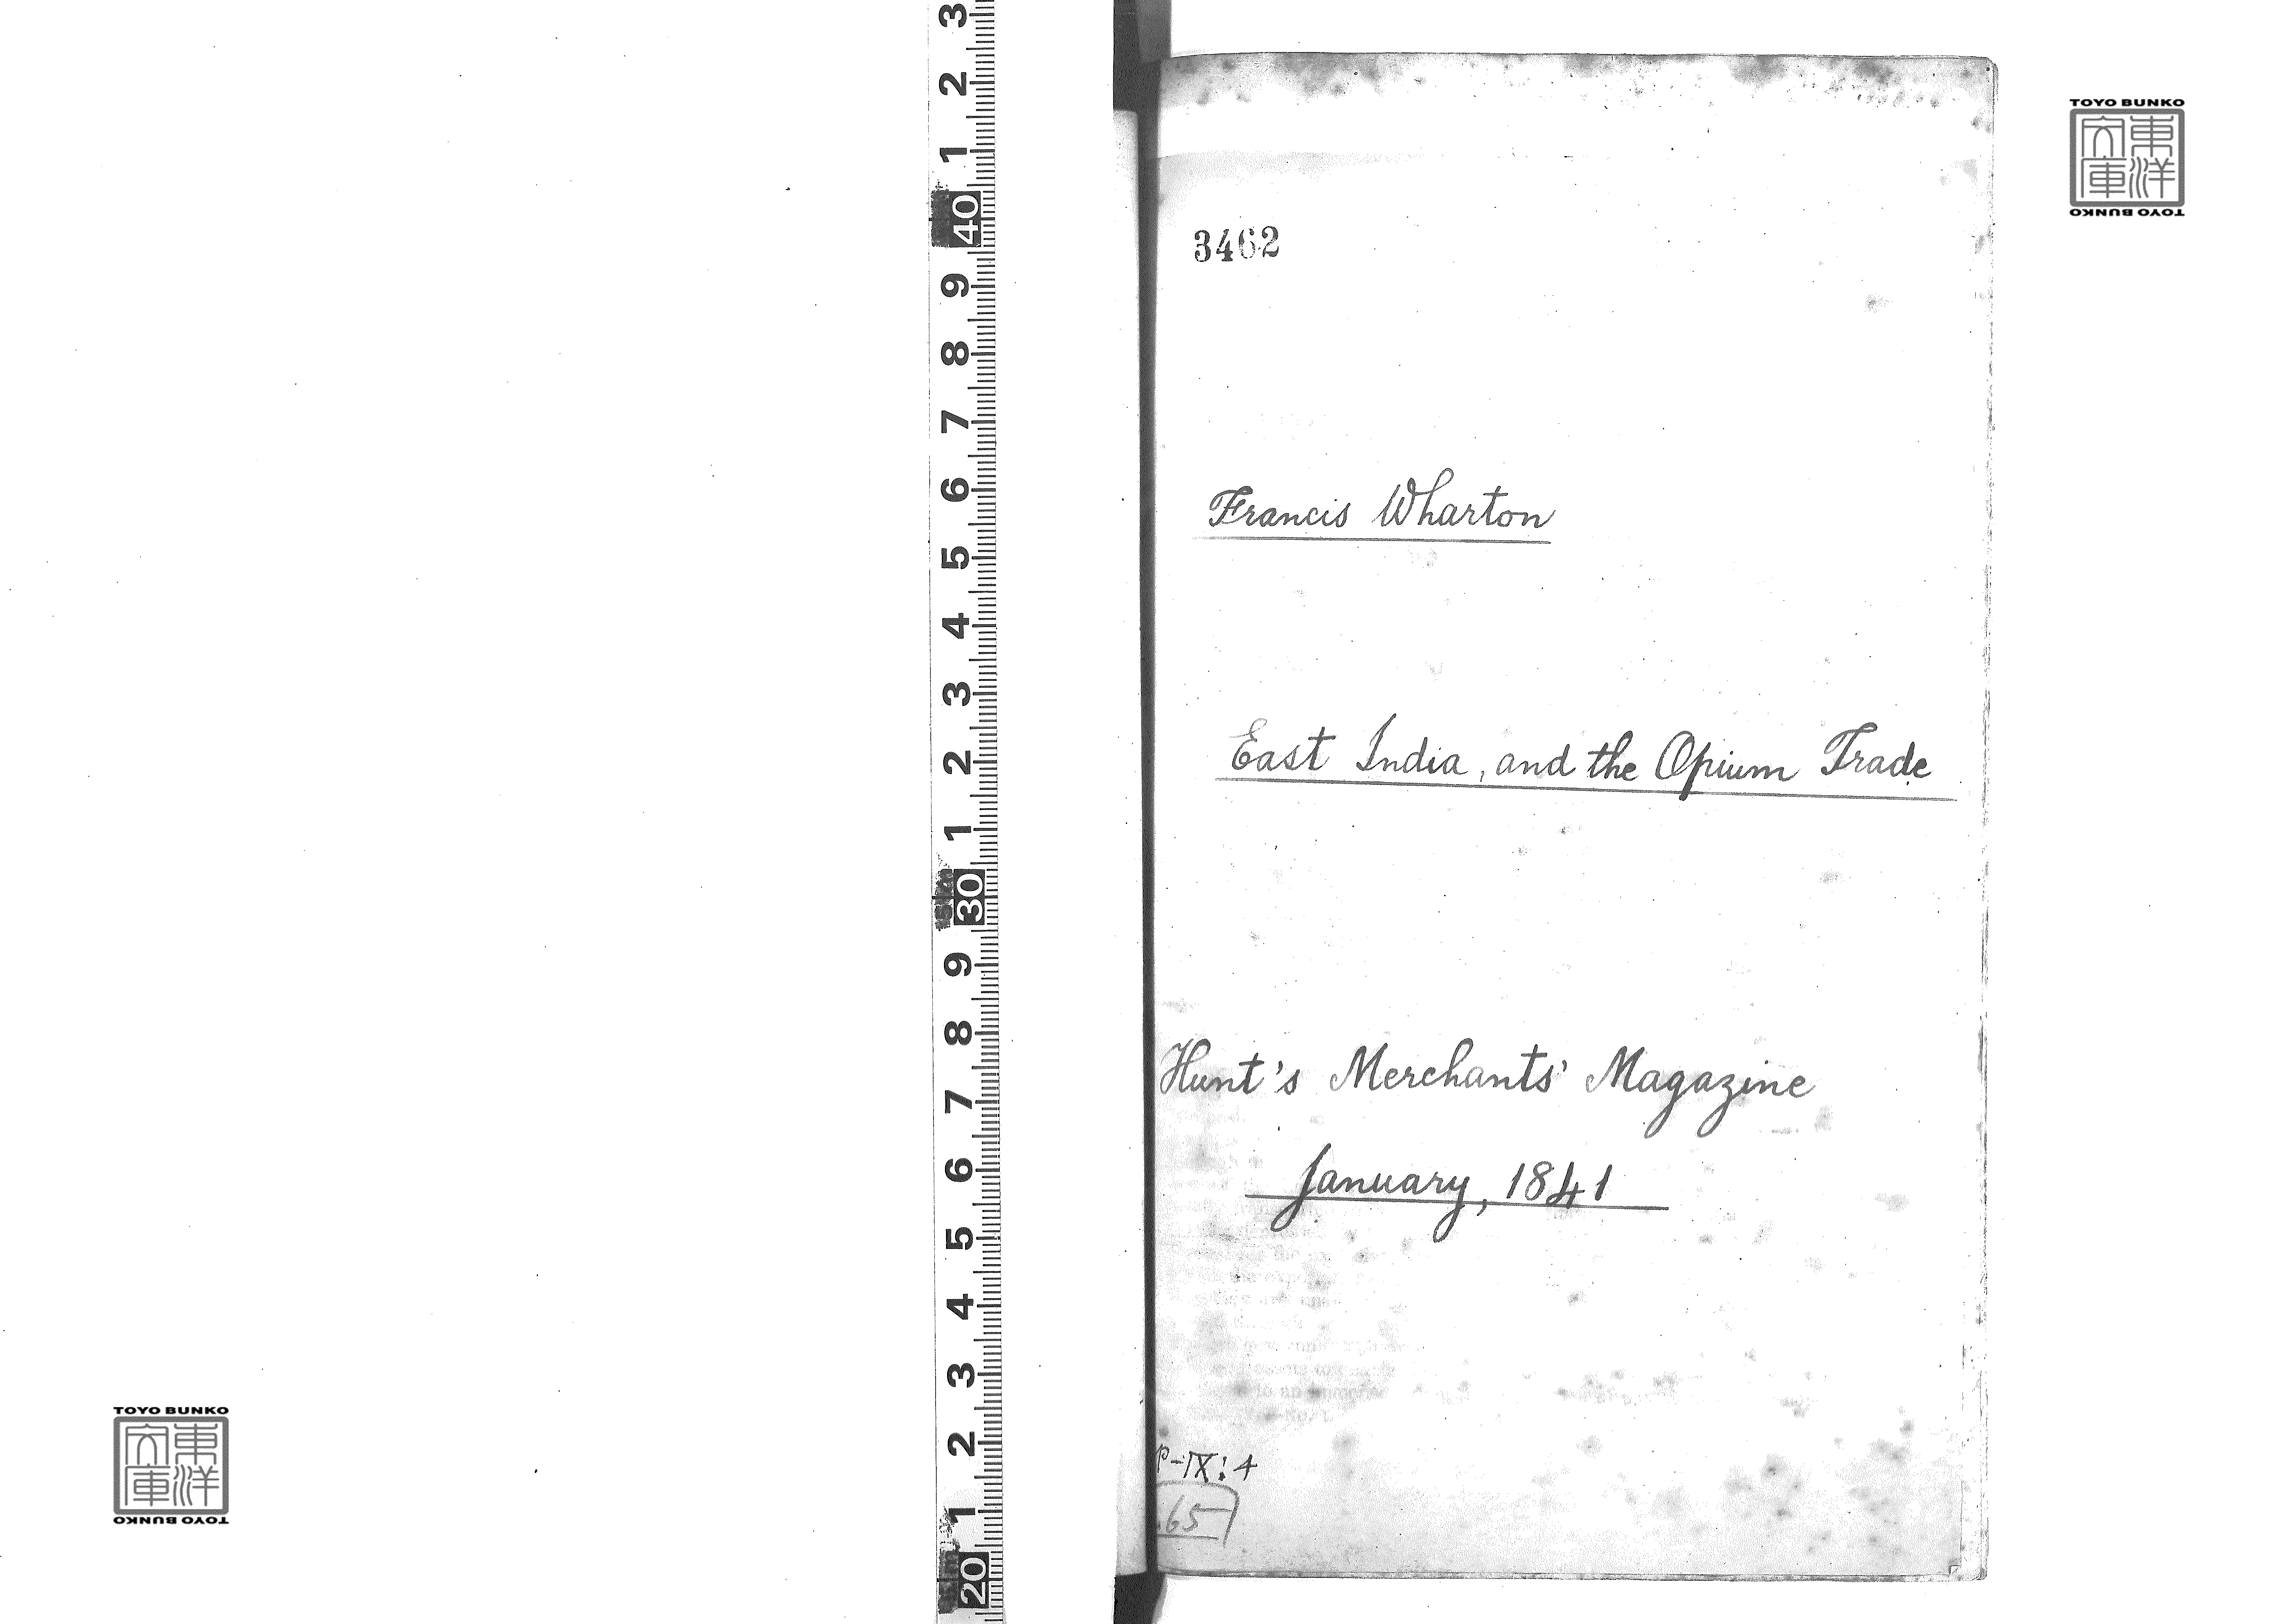 3462
Francis Wharton
East India, and the Opium Trade
Hunt's Merchants' Magazine
January, 1841
P-IX:4
65
3
2
1
40
9
8
7
6
5
4
3
2
1
30
9
8
7
6
5
4
3
2
1
20
TOYO BUNKO
東洋文庫
TOYO BUNKO
TOYO BUNKO
東洋文庫
TOYO BUNKO